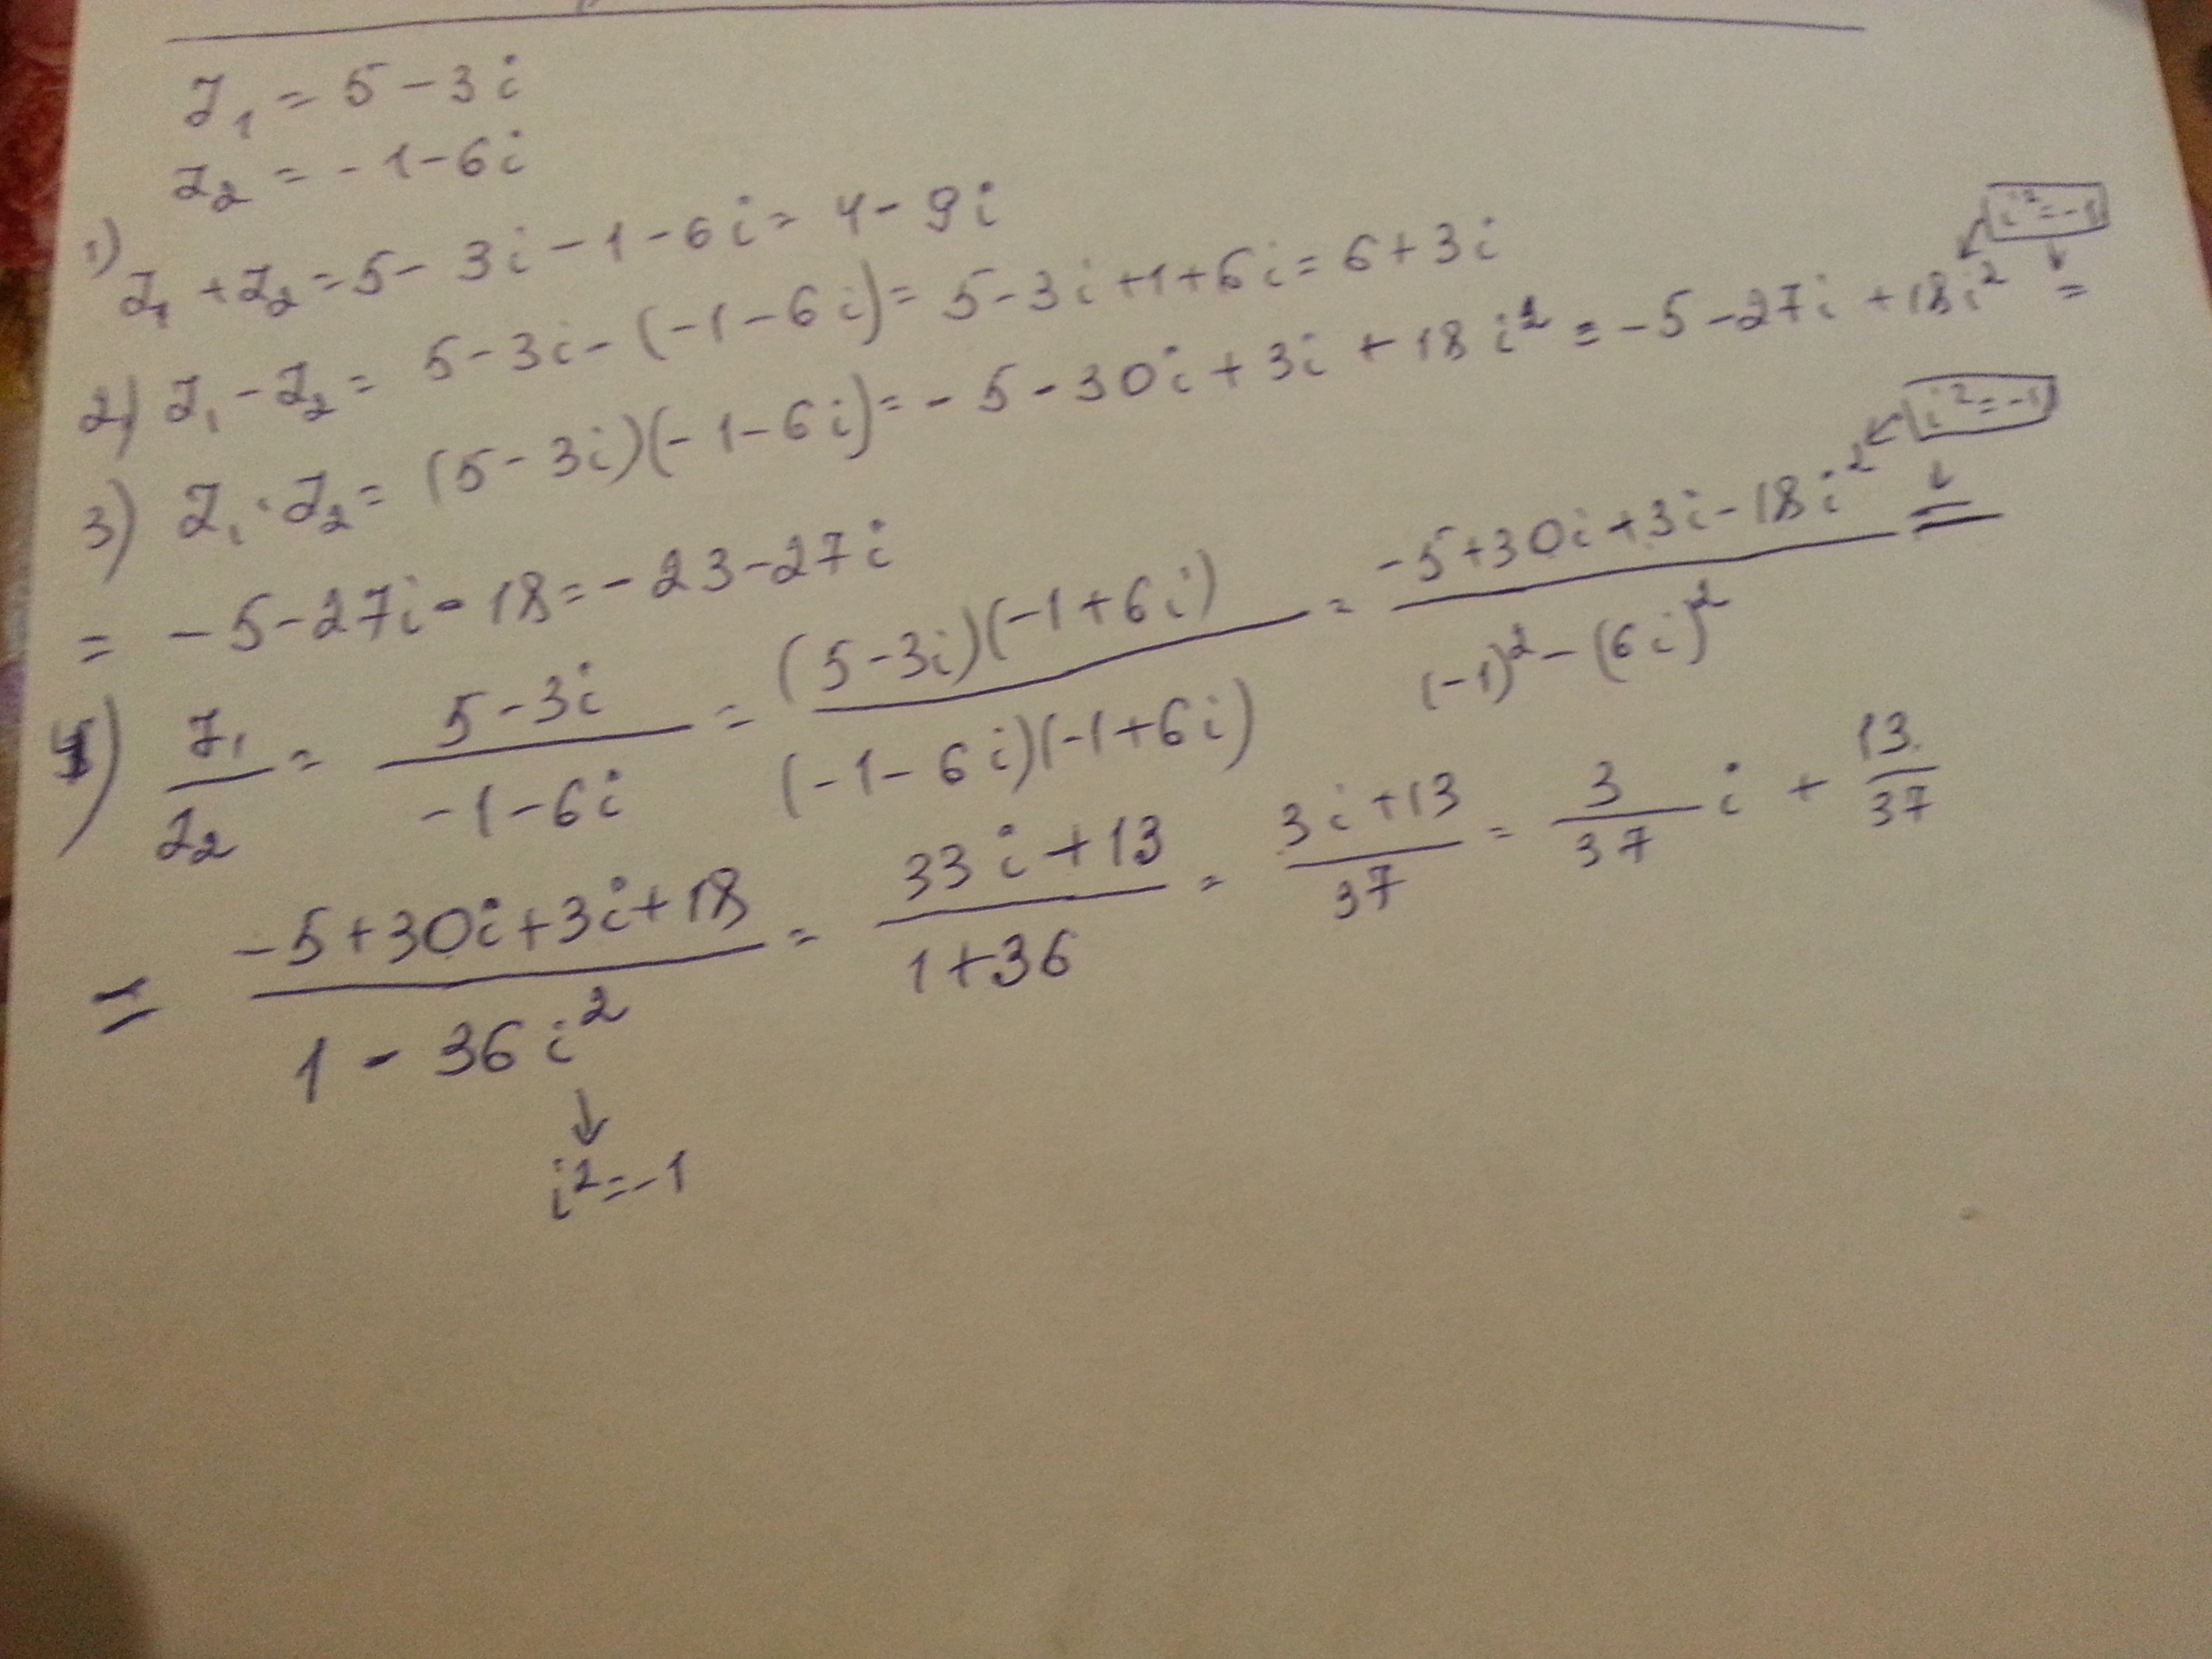 z₁ = 5 - 3i
z₂ = -1 - 6i
1) z₁ + z₂ = 5 - 3i - 1 - 6i = 4 - 9i
2) z₁ - z₂ = 5 - 3i - (-1 - 6i) = 5 - 3i + 1 + 6i = 6 + 3i
i² = -1
3) z₁ · z₂ = (5 - 3i)(-1 - 6i) = -5 - 30i + 3i + 18i² = -5 - 27i + 18i² =
= -5 - 27i - 18 = -23 - 27i
i² = -1
4) z₁/z₂ = (5 - 3i)/(-1 - 6i) = ((5 - 3i)(-1 + 6i))/((-1 - 6i)(-1 + 6i)) = (-5 + 30i + 3i - 18i²)/((-1)² - (6i)²) =
= (-5 + 30i + 3i + 18)/(1 - 36i²) = (33i + 13)/(1 + 36) = (3i + 13)/37 = 3/37 i + 13/37
i² = -1